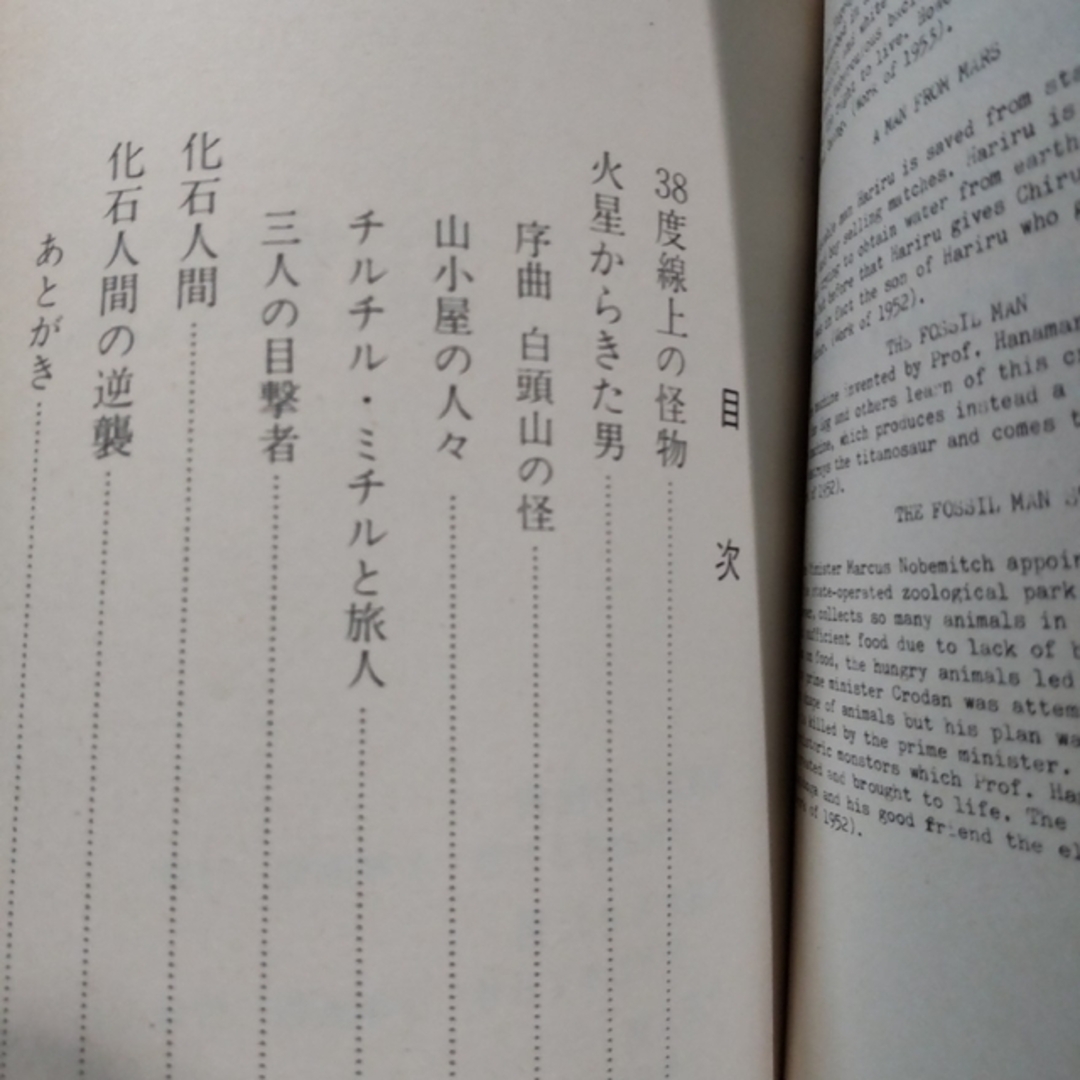 目次
38度線上の怪物
火星からきた男
序曲 白頭山の怪
山小屋の人々
チルチル・ミチルと旅人
三人の目撃者
化石人間
化石人間の逆襲
あとがき
to live.
(Work of 1953).
A MAN FROM MARS
man Hariru is saved from
by selling matches. Hariru is
to obtain water from earth
before that Hariru gives Chiru
in fact the son of Hariru who
(Work of 1952).
THE FOSSIL MAN
machine invented by Prof. Hanamar
and others learn of this
which produces instead a
the titanosaur and comes
of 1952).
THE FOSSIL MAN
Minister Marcus Nobemitch appoin
state-operated zoological park
collects so many animals in
sufficient food due to lack of
food, the hungry animals led
prime minister Crodan was attem
of animals but his plan wa
killed by the prime minister.
monstors which Prof. Ha
and brought to life. The
and his good friend the el
of 1952).